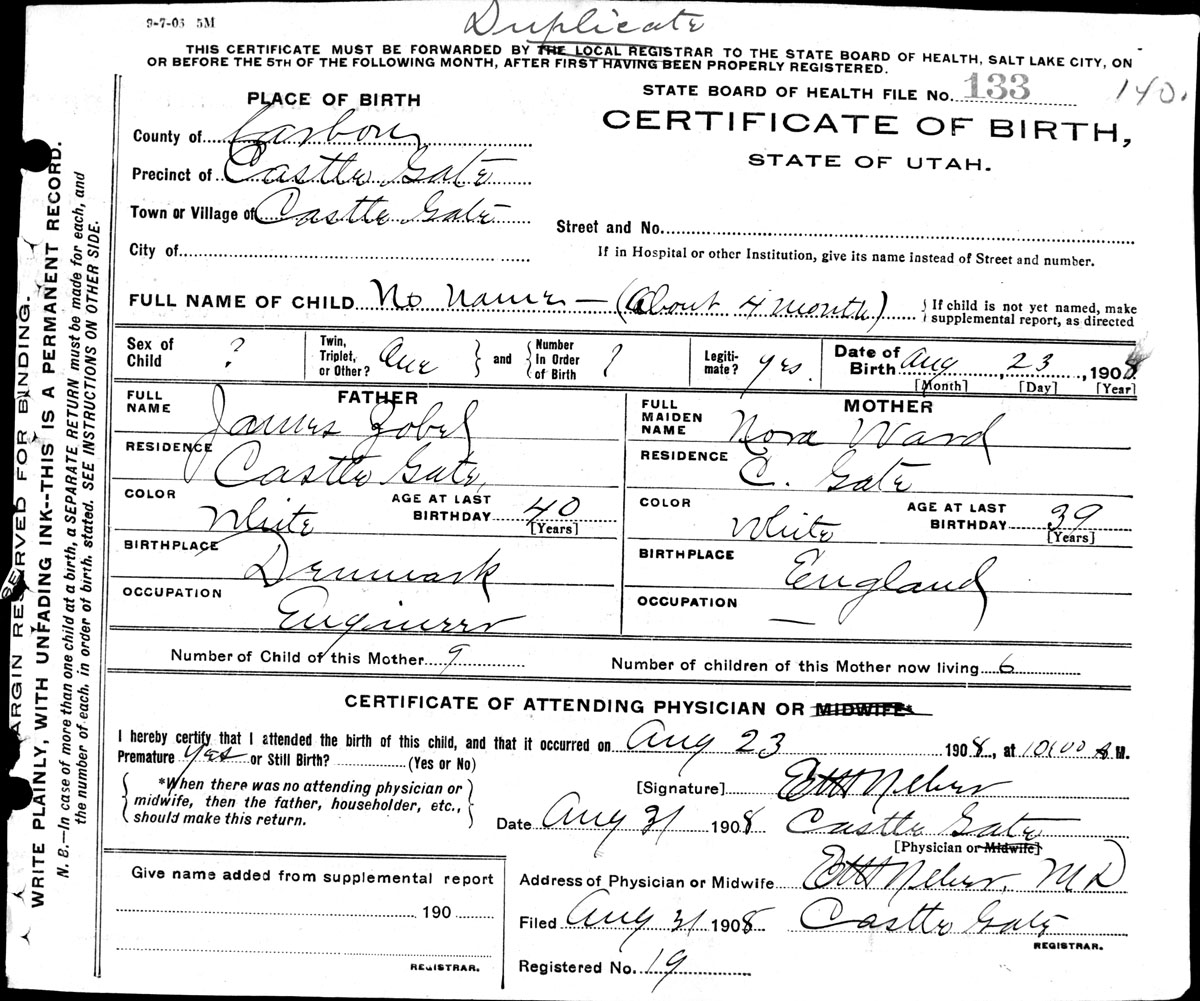 9-7-06 5M
Duplicate
THIS CERTIFICATE MUST BE FORWARDED BY THE LOCAL REGISTRAR TO THE STATE BOARD OF HEALTH, SALT LAKE CITY, ON
OR BEFORE THE 5TH OF THE FOLLOWING MONTH, AFTER FIRST HAVING BEEN PROPERLY REGISTERED.
STATE BOARD OF HEALTH FILE NO. 133
140.
PLACE OF BIRTH
CERTIFICATE OF BIRTH,
STATE OF UTAH.
County of Carbon
Precinct of Castle Gate
Town or Village of Castle Gate
Street and No.
City of
If in Hospital or other Institution, give its name instead of Street and number.
FULL NAME OF CHILD No Name — (About 4 month) { If child is not yet named, make
supplemental report, as directed
Sex of Child ? Twin, Triplet, or Other? One } and { Number In Order of Birth ? Legiti-mate? yes. Date of Birth Aug 23, 1908
[Month] [Day] [Year]
FATHER MOTHER
FULL NAME James Zobel FULL MAIDEN NAME Nora Ward
RESIDENCE Castle Gate, RESIDENCE C. Gate
COLOR White AGE AT LAST BIRTHDAY 40 [Years] COLOR White AGE AT LAST BIRTHDAY 39 [Years]
BIRTHPLACE Denmark BIRTHPLACE England
OCCUPATION Engineer OCCUPATION —
Number of Child of this Mother 9 Number of children of this Mother now living 6
CERTIFICATE OF ATTENDING PHYSICIAN OR MIDWIFE
I hereby certify that I attended the birth of this child, and that it occurred on Aug 23 1908, at 10:00 A M.
Premature yes or Still Birth? (Yes or No)
*When there was no attending physician or
midwife, then the father, householder, etc.,
should make this return.
[Signature]
Date Aug 31 1908 Castle Gate
[Physician or Midwife]
Give name added from supplemental report
190
REGISTRAR.
Address of Physician or Midwife M D
Filed Aug 31 1908 Castle Gate
REGISTRAR.
Registered No. 19
MARGIN RESERVED FOR BINDING.
WRITE PLAINLY, WITH UNFADING INK--THIS IS A PERMANENT RECORD.
N. B.—In case of more than one child at a birth, a SEPARATE RETURN must be made for each, and
the number of each, in order of birth, stated. SEE INSTRUCTIONS ON OTHER SIDE.